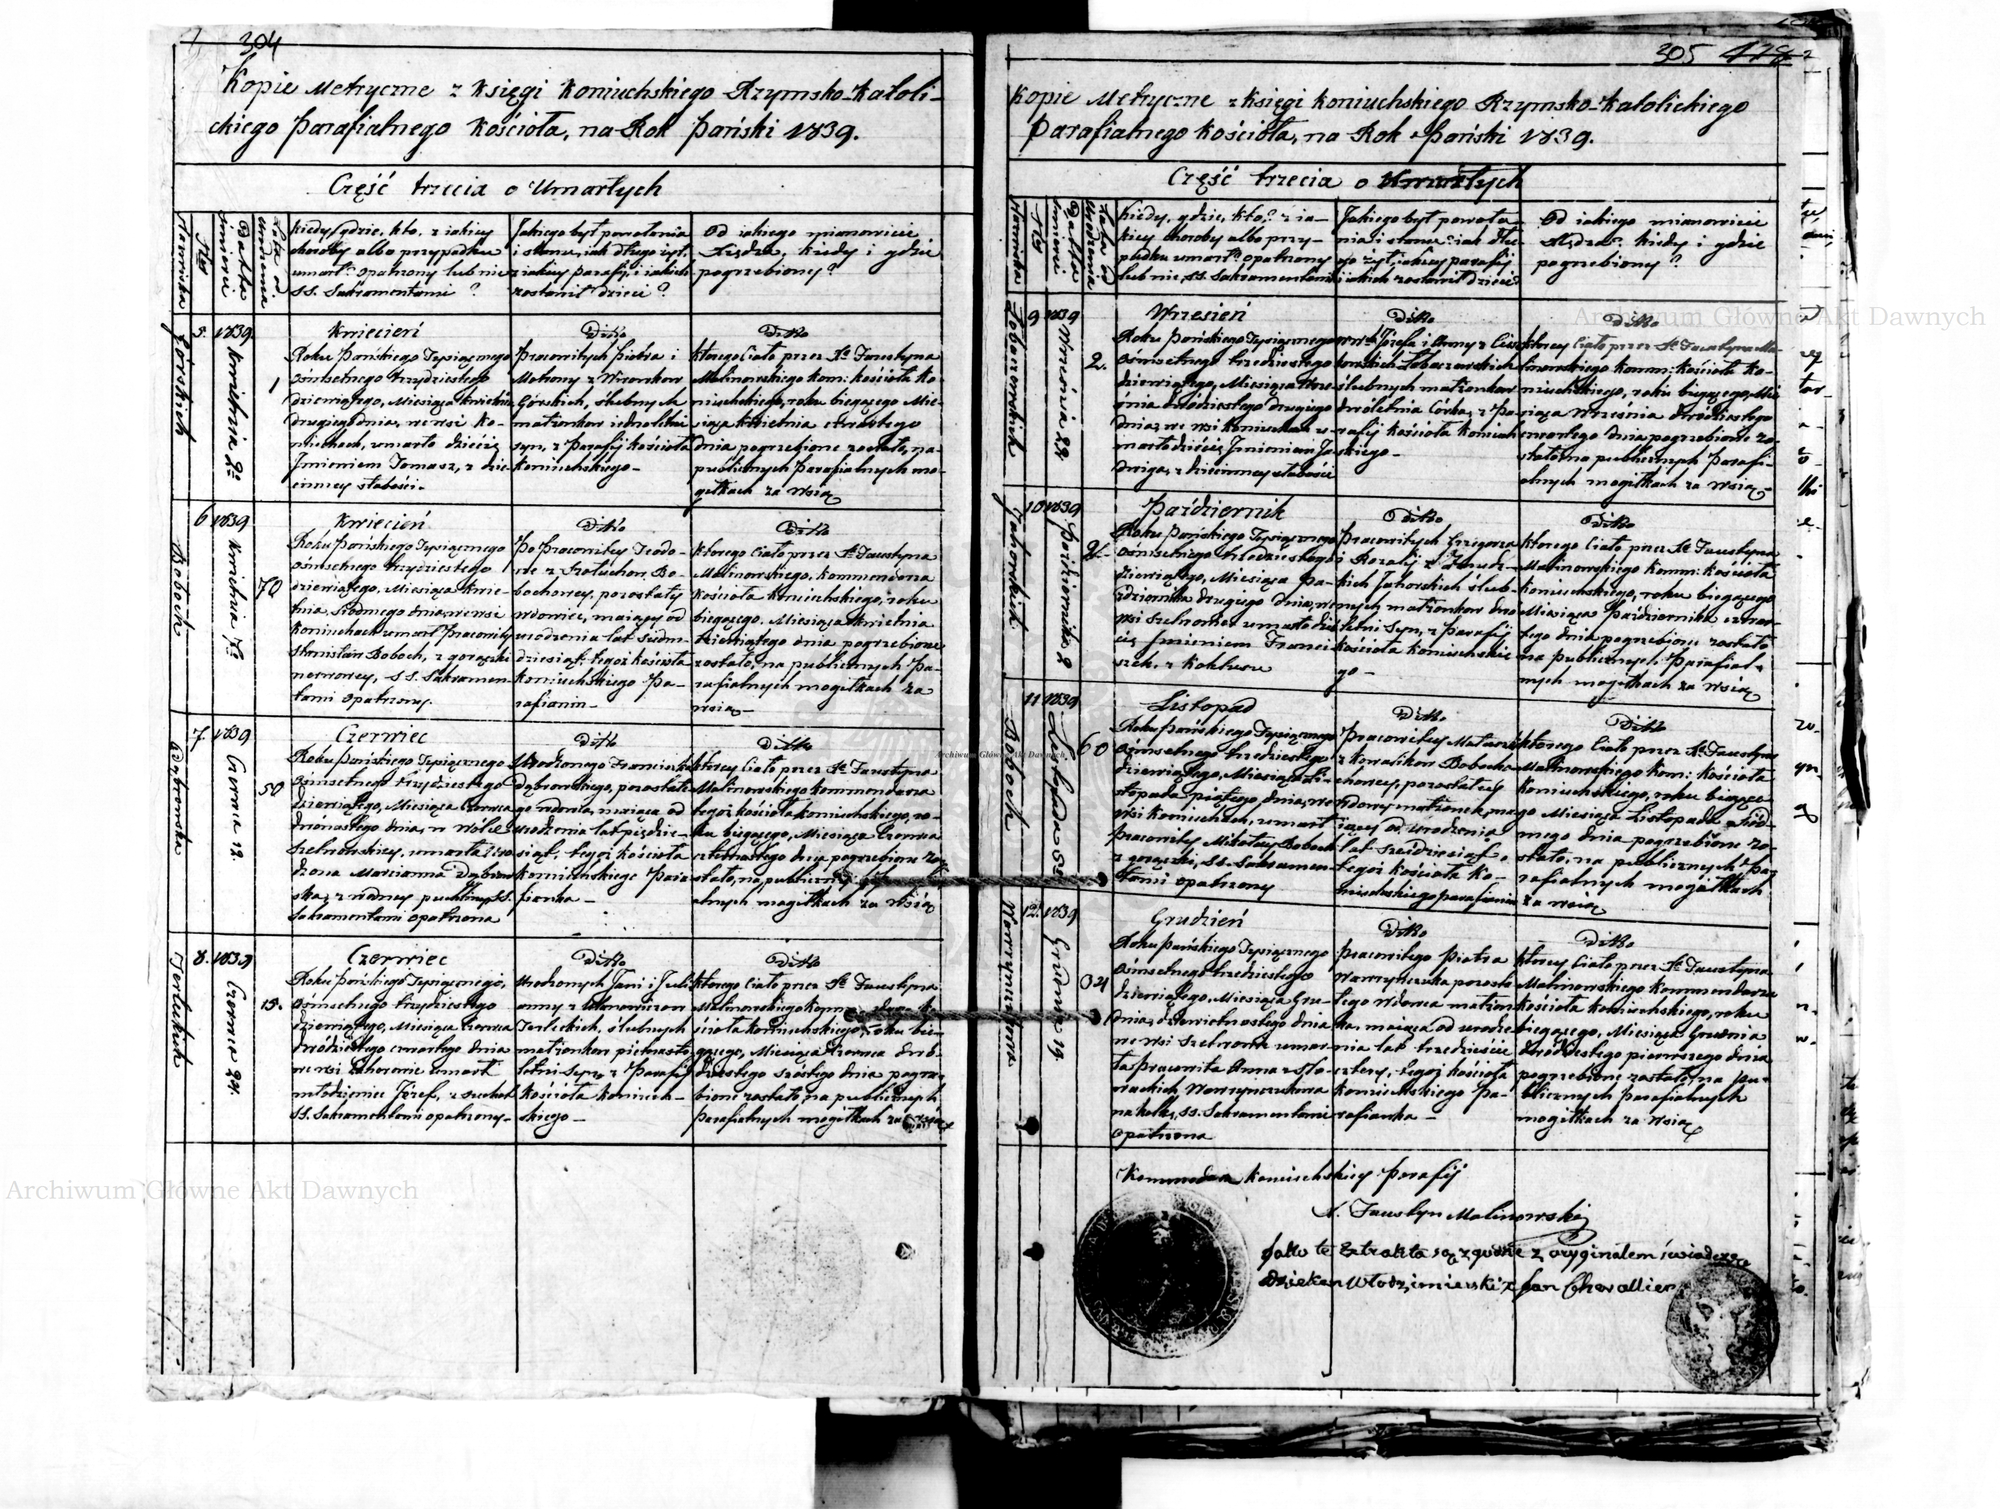 304
Kopie Metryczne z księgi Koniuchskiego Rzymsko-Katoli-
ckiego Parafialnego Kościoła, na Rok Pański 1839.
Część trzecia o Umarłych
Kiedy, gdzie, kto, z iakiey
choroby albo przypadku
umarł? opatrzony lub nie
SS. Sakramentami?
Jakiego był powołania
i stanu, iak długo żył,
z iakiey parafij, i iakich
zostawił dzieci?
Od iakiego mianowicie
Xiędza, kiedy i gdzie
pogrzebiony?
Górskich
5. 1839 Kwietnia 2o
1
Kwiecień
Roku Pańskiego Tysiącznego
Ośmsetnego trzydziestego
dziewiątego, Miesiąca Kwietnia
drugiego dnia, we wsi Ko-
niuchach, umarło dziecię
Imieniem Tomasz, z dzie-
cinney słabości.
Ditto
Pracowitych Piotra i
Górskich, ślubnych
małżonkow iednoletni
syn, z Parafij Kościoła
Koniuchskiego-
Ditto
ktorego Ciało przez Xa Faustyna
Malinowskiego Kom: Kościoła Ko-
niuchskiego, roku bieżącego Mie-
siąca Kwietnia czwartego
dnia pogrzebione zostało, na
publicznych Parafialnych mo-
giłkach za Wsią
Boboch
6 1839 Kwietnia 7o
70
Kwiecień
Roku Pańskiego Tysiącznego
Ośmsetnego trzydziestego
dziewiątego, Miesiąca Kwie-
tnia, siodmego dnia, we wsi
Koniuchach umarł Pracowity
Stanisław Boboch, z gorączki
nerwowey, SS. Sakramen-
tami opatrzony.
Ditto
Po Pracowitey Teodo-
bochowey, pozostały
wdowiec, maiący od
urodzenia lat siedm-
dziesiąt, tegoż kościoła
Koniuchskiego Pa-
rafianin-
Ditto
ktorego Ciało przez Xa Faustyna
Malinowskiego, Kommendarza
Kościoła Koniuchskiego, roku
bieżącego, Miesiąca Kwietnia
dziewiątego dnia pogrzebione
zostało, na publicznych Pa-
rafialnych mogiłkach za
wsią-
Dąbrowska
7. 1839 Czerwca 12.
50
Czerwiec
Roku Pańskiego Tysiącznego
Ośmsetnego trzydziestego
dziewiątego, Miesiąca Czerwca
dwónastego dnia, w Wólce
Szelwowskiey, umarła Uro-
dzona Marianna Dąbrow-
ska, z wodney puchliny, SS.
Sakramentami opatrzona
Ditto
Urodzonego Franciszka
Dąbrowskiego, pozostała
go wdowa, maiąca od
urodzenia lat pięćdzie-
siąt, tegoż kościoła
Koniuchskiego Para-
fianka-
Ditto
ktorey Ciało przez Xa Faustyna
Malinowskiego Kommendarza
tegoż kościoła Koniuchskiego, ro-
ku bieżącego, Miesiąca Czerwca
czternastego dnia pogrzebione zo-
stało, na publicznych
alnych mogiłkach za Wsią
Terleckich
8. 1839 Czerwca 24.
15.
Czerwiec
Roku Pańskiego Tysiącznego,
Ośmsetnego trzydziestego
dziewiątego, Miesiąca Czerwca
dwódziestego czwartego dnia
we wsi umarł
młodzieniec Józef, z suchot
SS. Sakramentami opatrzony-
Ditto
Urodzonych Jana i Juli-
anny z
Terleckich, ślubnych
małżonkow pietnasto
letni Syn, z Parafij
Kościoła Koniuch-
skiego-
Ditto
ktorego Ciało przez Xa Faustyna
Malinowskiego
ścioła Koniuchskiego, roku bie-
żącego, Miesiąca Czerwca dwó-
dziestego szóstego dnia pogrze-
bione zostało, na publicznych
Parafialnych mogiłkach za Wsią
305
Kopie Metryczne z Księgi Koniuchskiego Rzymsko-Katolickiego
Parafialnego Kościoła, na Rok Pański 1839.
Część trzecia o Umarłych
Kiedy, gdzie, kto? z ia-
kiey choroby albo przy-
padku umarł? opatrzony
lub nie, SS. Sakramentami
Jakiego był powoła-
nia i stanu? iak dłu-
go żył, iakiey parafij
i iakich zostawił dzieci
Od iakiego mianowicie
Xiędza? kiedy i gdzie
pogrzebiony?
9 1839 Września 22.
2.
Wrzesień
Roku Pańskiego Tysiącznego
Ośmsetnego trzedziestego
dziewiątego, Miesiąca Wrze-
śnia dwódziestego drugiego
dnia, we wsi Koniuchach u-
marło dziecię Imieniem Ja-
dwiga, z dziecinney słabości
Ditto
ślubnych małżonkow
dwóletnia Córka, z Pa-
rafij Kościoła Koniuch-
skiego-
Ditto
ktorey Ciało przez Xa Faustyna Ma-
linowskiego Komm: Kościoła Ko-
niuchskiego, roku bieżącego, Mie-
siąca Września dwódziestego
czwartego dnia pogrzebione zo-
stało na publicznych Parafi-
alnych mogiłkach za Wsią-
10 1839 Października 2
2.
Październik
Roku Pańskiego Tysiącznego
Ośmsetnego trzedziestego
dziewiątego, Miesiąca Pa-
ździernika drugiego dnia, we
wsi Szelwowie umarło dzie-
cię Imieniem Franci-
szek, z Kokluszu
Ditto
Pracowitych Grzegorza
i Rozalij z
kich ślub-
nych małżonkow dwó
letni Syn, z Parafij
Kościoła Koniuchskie
go-
Ditto
ktorego Ciało przez Xa Faustyna
Malinowskiego Komm: Kościoła
Koniuchskiego, roku bieżącego
Miesiąca Października czwar-
tego dnia pogrzebione zostało
na publicznych Parafial-
nych mogiłkach za Wsią
Boboch
11 1839 Listopada 5o
60
Listopad
Roku Pańskiego Tysiącznego
Ośmsetnego trzedziestego
dziewiątego, Miesiąca Li-
stopada piątego, dnia, we
Wsi Koniuchach, umarł
Pracowity Mikołay Boboch
z gorączki, SS. Sakramen-
tami opatrzony
Ditto
Pracowitey
z Kowalikow Bobo-
chowey, pozostały
wdowy małżonek, ma-
iący od urodzenia
lat sześćdziesiąt,
tegoż kościoła Ko-
niuchskiego parafianin
Ditto
ktorego Ciało przez Xa Faustyna
Malinowskiego Kom: Kościoła
Koniuchskiego, roku bieżące-
go Miesiąca Listopada siód-
mego dnia pogrzebione zo-
stało, na publicznych Pa-
rafialnych mogiłkach
za wsią
12. 1839 Grudnia 19
34
Grudzień
Roku Pańskiego Tysiącznego
Ośmsetnego trzedziestego
dziewiątego, Miesiąca Gru-
dnia, dziewietnastego dnia
we Wsi Szelwowie umar-
ła Pracowita Anna z Sło-
wackich, Wawryniukowa
na kolkę, SS. Sakramentami
opatrzona
Ditto
Pracowitego Piotra
Wawryniuka pozosta-
łego wdowca małżon-
ka, maiąca od urodze-
nia lat trzedzieście
cztery, tegoż kościoła
Koniuchskiego Pa-
rafianka-
Ditto
ktorey Ciało przez Xa Faustyna
Malinowskiego Kommendarza
Kościoła Koniuchskiego, roku
bieżącego, Miesiąca Grudnia
dwódziestego pierwszego dnia
pogrzebione zostało, na pu-
blicznych Parafialnych
mogiłkach za Wsią
Kommendarz Koniuchskiey Parafij
X. Faustyn Malinowski
Jako te Extrakta są zgodne z oryginałem świadczę
Dziekan Włodzimierski X Jan Chevallier
Archiwum Główne Akt Dawnych
Archiwum Główne Akt Dawnych
Archiwum Główne Akt Dawnych